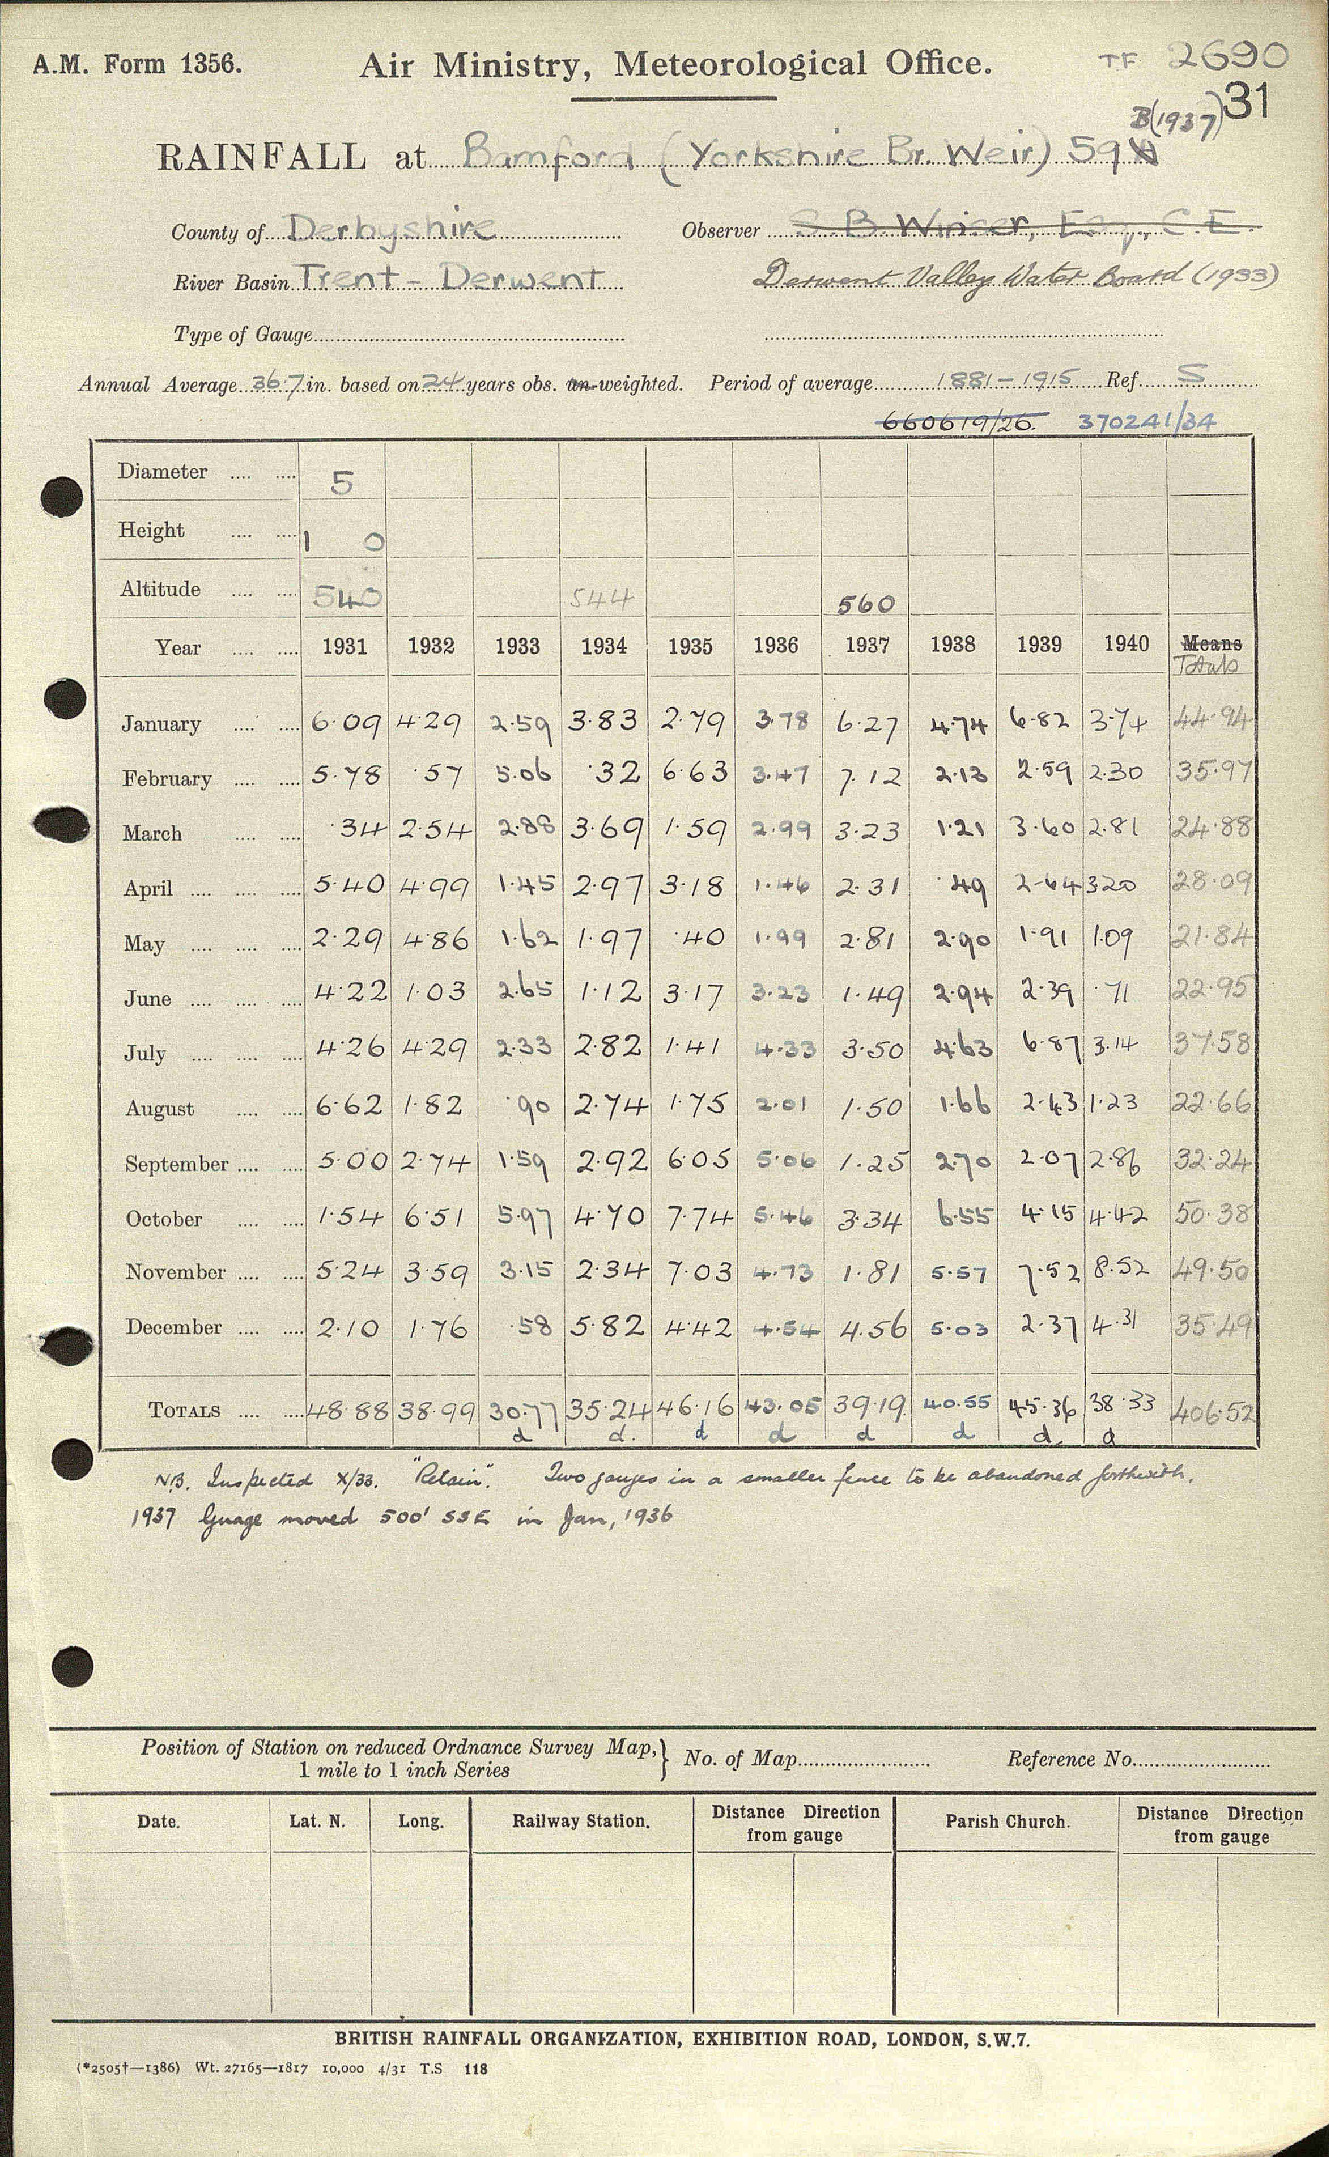 A.M. Form 1356. Air Ministry, Meteorological Office. TF 2690
31
B(1937)
RAINFALL at Bamford (Yorkshire Br. Weir) 59
County of Derbyshire Observer S. B. Winser, Esq., C.E.
River Basin Trent - Derwent Derwent Valley Water Board (1933)
Type of Gauge
Annual Average 36.7 in. based on 24 years obs. un-weighted. Period of average 1881-1915 Ref. S
660619/26. 370241/34
Diameter 5
Height 1 0
Altitude 540 544 560
Year 1931 1932 1933 1934 1935 1936 1937 1938 1939 1940 Means
Totals
January 6.09 4.29 2.59 3.83 2.79 3.78 6.27 4.74 6.82 3.74 44.94
February 5.78 .57 5.06 .32 6.63 3.47 7.12 2.13 2.59 2.30 35.97
March .34 2.54 2.88 3.69 1.59 2.99 3.23 1.21 3.60 2.81 24.88
April 5.40 4.99 1.45 2.97 3.18 1.46 2.31 .49 2.64 3.20 28.09
May 2.29 4.86 1.62 1.97 .40 1.99 2.81 2.90 1.91 1.09 21.84
June 4.22 1.03 2.65 1.12 3.17 3.23 1.49 2.94 2.39 .71 22.95
July 4.26 4.29 2.33 2.82 1.41 4.33 3.50 4.63 6.87 3.14 37.58
August 6.62 1.82 .90 2.74 1.75 2.01 1.50 1.66 2.43 1.23 22.66
September 5.00 2.74 1.59 2.92 6.05 5.06 1.25 2.70 2.07 2.86 32.24
October 1.54 6.51 5.97 4.70 7.74 5.46 3.34 6.55 4.15 4.42 50.38
November 5.24 3.59 3.15 2.34 7.03 4.73 1.81 5.57 7.52 8.52 49.50
December 2.10 1.76 .58 5.82 4.42 4.54 4.56 5.03 2.37 4.31 35.49
TOTALS 48.88 38.99 30.77 35.24 46.16 43.05 39.19 40.55 45.36 38.33 406.52
d d. d d d d d. d
N.B. Inspected X/33. "Retain". Two gauges in a smaller fence to be abandoned forthwith.
1937 Guage moved 500' SSE in Jan, 1936
Position of Station on reduced Ordnance Survey Map, 1 mile to 1 inch Series } No. of Map Reference No.
Date. Lat. N. Long. Railway Station. Distance Direction from gauge Parish Church. Distance Direction from gauge
BRITISH RAINFALL ORGANIZATION, EXHIBITION ROAD, LONDON, S.W.7.
(*2505†—1386) Wt. 27165—1817 10,000 4/31 T.S 118